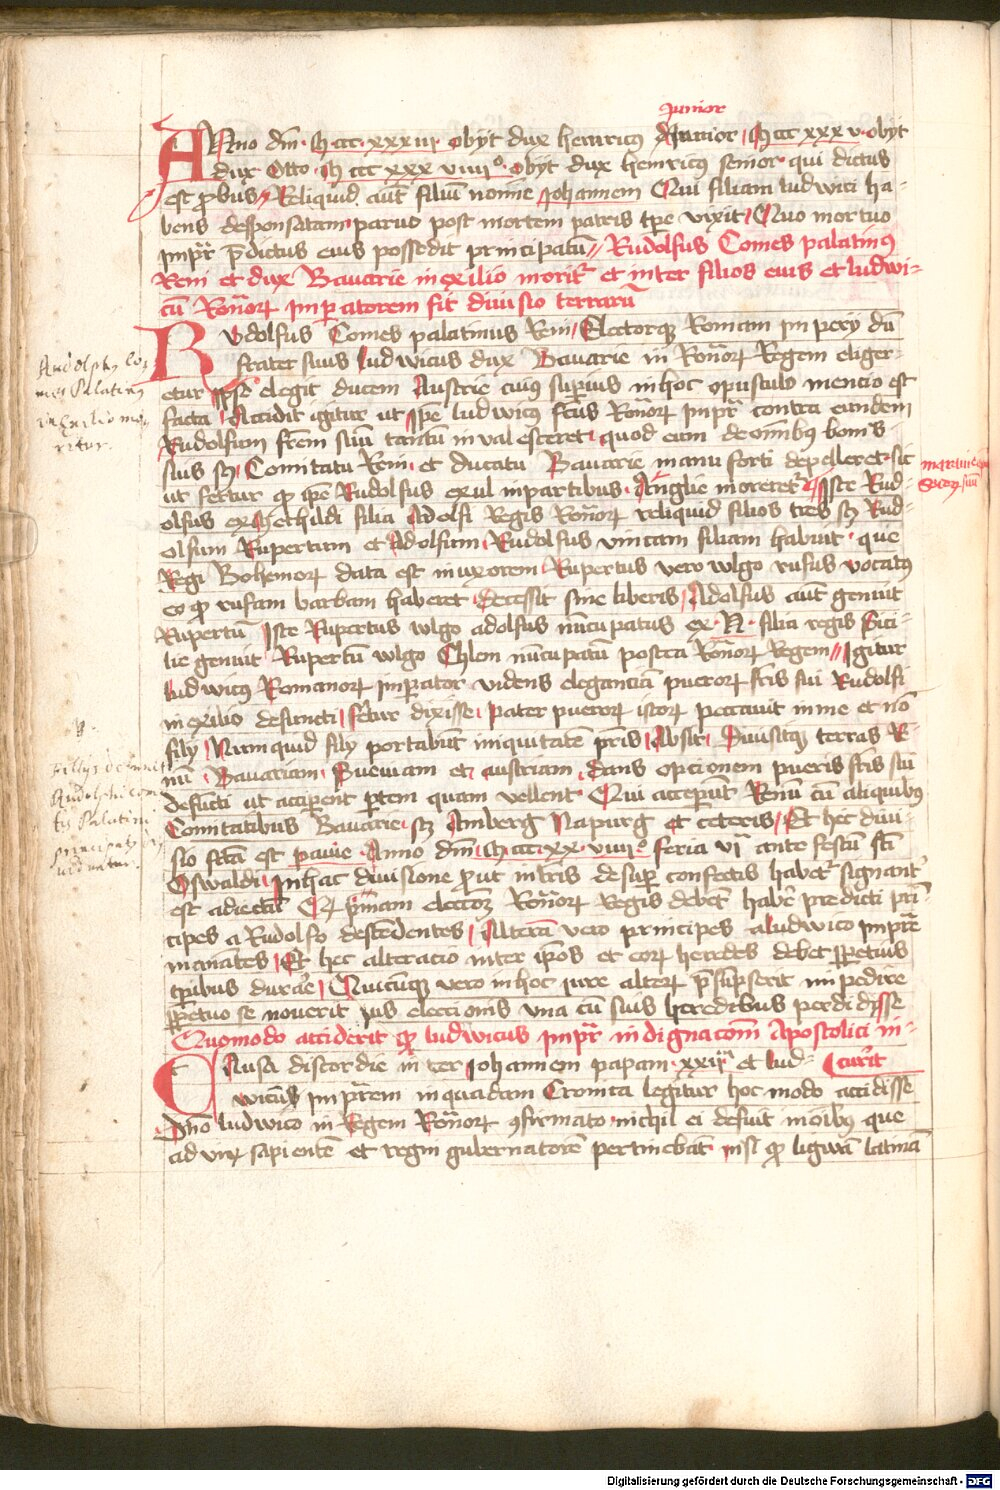 Junior
Anno dm̄ · M ccc xxxiii obyt dux heinricus Junior M ccc xxx v · obyt
dux Otto · M ccc xxx viiii° · obyt dux heinricus senior · qui dictus
est probus Reliquid aut̄ filiū nomine Johannem Qui filiam ludwici ha-
bens desponsatam paruo post mortem patris tp̄e vixit Quo mortuo
Impr̄r p̄dictus eius possedit principatū Rudolfus Comes palatinus
Reni et dux Bauarie in exilio morit᷑ et inter filios eius et ludwi-
cū Romāoꝝ Imperatorem fit diuisio terrarū
Rvdolfus Comes palatinus Reni Electorqꝫ Romani impery dū
frater suus ludwicus dux Bauarie in Romāoꝝ Regem eliger-
etur Ip̄e elegit ducem Austrie cuius superius in hoc opusculo mencio est
facta Accidit igitur ut ip̄e ludwicus fc̄us Romāoꝝ Impr̄r contra eundem
Rudolfum fr̄em suū tantū in valesceret quod eum de omībus bonis
suis sꝫ Comitatu Reni et ducatu Bauarie manu forti depelleret sic
ut fertur qꝫ ip̄e Rudolfus exul in partibus Anglie moreret᷑ Iste Rud-
olfus ex Mechildi filia Adolfi Regis Romāoꝝ reliquid filios tres sꝫ Rud-
olfum Rupertum et Adolfum Rudolfus vnicam filiam habuit que
Regi Bohemoꝝ data est in uxorem Rupertus vero wlgo rufus vocatus
eo qꝫ rufam barbam haberet Decessit sine liberis Adolfus aut̄ genuit
Rupertū Iste Rupertus wlgo adolfus nūcupatus ex N · filia regis Sici-
lie genuit Rupertū wlgo Chlem nūcupatū postea Romāoꝝ Regem Igitur
ludwicus Romanoꝝ Imperator videns eleganciā pueroꝝ fr̄is sui Rudolfi
in exilio defuncti fertur dixisse pater pueroꝝ istoꝝ peccauit in me et nō
fily Numquid fily portabūt iniquitatē pr̄is Absit Diuisitqꝫ terras R-
num Bauariam Sueuiam et austriam dans opcionem pueris fr̄is sui
defūcti ut acciperent ptem quam vellent Qui acceperūt Renū cū aliquibus
Comitatibus Bauarie sꝫ Amberg Napurg et ceteris Et hec diui-
sio fc̄a est pauie Anno dm̄ M ccc xx viiii° feria viª ante festū sc̄i
Oswaldi In hac diuisione prout in lr̄is desuper confectis habet᷑ signant᷑
est adiectū Qꝫ primam eleccōꝫ Romāoꝝ Regis debēt haber̄ predicti prī-
cipes a Rudolfo descendentes Alterā vero principes a ludwico impr̄e
manātes Et hec alteracio inter ip̄os et eoꝝ heredes debet perpetuis
tp̄ribus durāe Quicūqꝫ vero in hoc iure alteꝝ p̄sūpserit impedire
perpetuo se nouerit ius eleccionis vna cū suis heredibus perdidisse
Quomodo acciderit qꝫ ludwicus Impr̄r indignacōm Apostolici in-
curīt
Causa discordie inter Johannem papam xxiiᵐ et lud-
wicūs impr̄em in quadam Cronica legitur hoc modo accidisse
Dm̄o ludwico in Regem Romāoꝝ ꝯfirmato nichil ei defuit in oībus que
ad viꝝ sapientē et regni gubernatorē pertinebāt nisi qꝫ ligwā latinā
Rudolphꝰ co-
mes Palatinꝰ
in exilio mo-
ritur.
Filiys defuncti
Rudolphi com-
tis Palatini